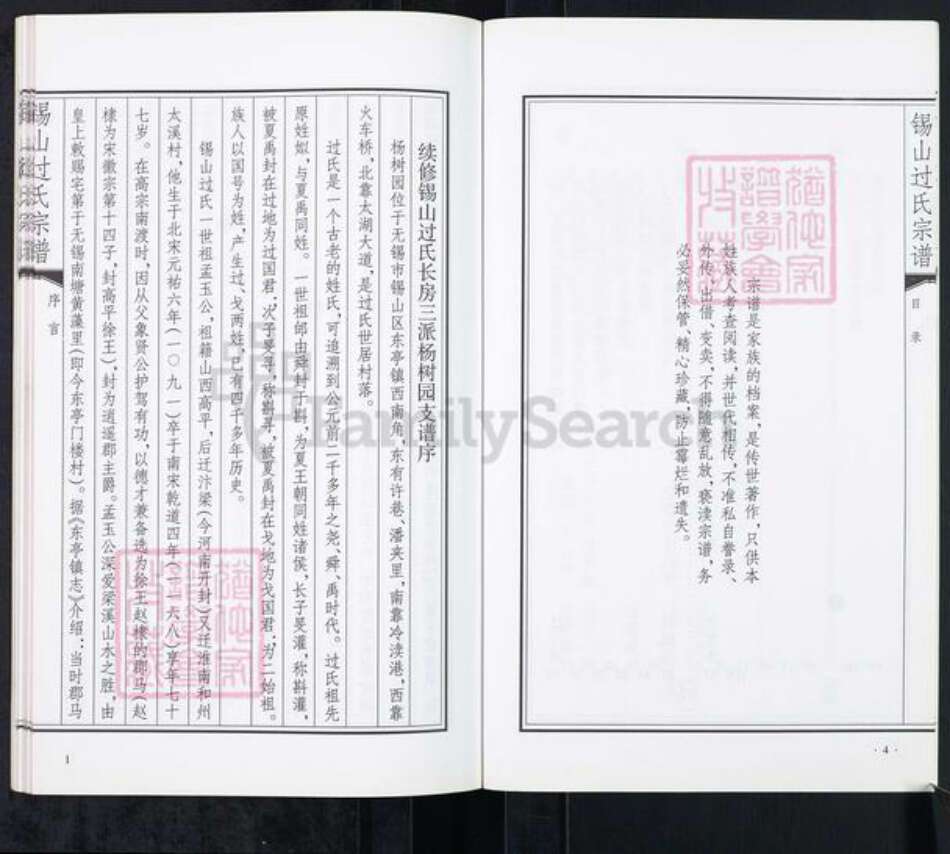 锡山过氏宗谱
目录
宗谱是家族的档案，是传世著作，只供本
姓族人考查阅读，并世代相传，不准私自誊录、
外传、出借、变卖，不得随意乱放，亵渎宗谱，务
必妥然保管、精心珍藏，防止霉烂和遗失。
·4·
续修锡山过氏长房三派杨树园支谱序
杨树园位于无锡市锡山区东亭镇西南角，东有许巷、潘夹里，南靠冷渎港，西靠
火车桥，北靠太湖大道，是过氏世居村落。
过氏是一个古老的姓氏，可追溯到公元前二千多年之尧、舜、禹时代。过氏祖先
原姓姒，与夏禹同姓。一世祖郇由舜封于斟，为夏王朝同姓诸侯，长子旻灌，称斟灌，
被夏禹封在过地为过国君；次子旻寻，称斟寻，被夏禹封在戈地为戈国君；为二始祖。
族人以国号为姓，产生过、戈两姓，已有四千多年历史。
锡山过氏一世祖孟玉公，祖籍山西高平，后迁汴梁（今河南开封）又迁淮南和州
太溪村，他生于北宋元祐六年（一〇九一）卒于南宋乾道四年（一一六八）享年七十
七岁。在高宗南渡时，因从父象贤公护驾有功，以德才兼备选为徐王赵棣的郡马（赵
棣为宋徽宗第十四子，封高平徐王），封为逍遥郡主爵。孟玉公深爱梁溪山水之胜，由
皇上敕赐宅第于无锡南塘黄藻里（即今东亭门楼村）。据《东亭镇志》介绍：当时郡马
锡山过氏宗谱
序言
1
FamilySearch